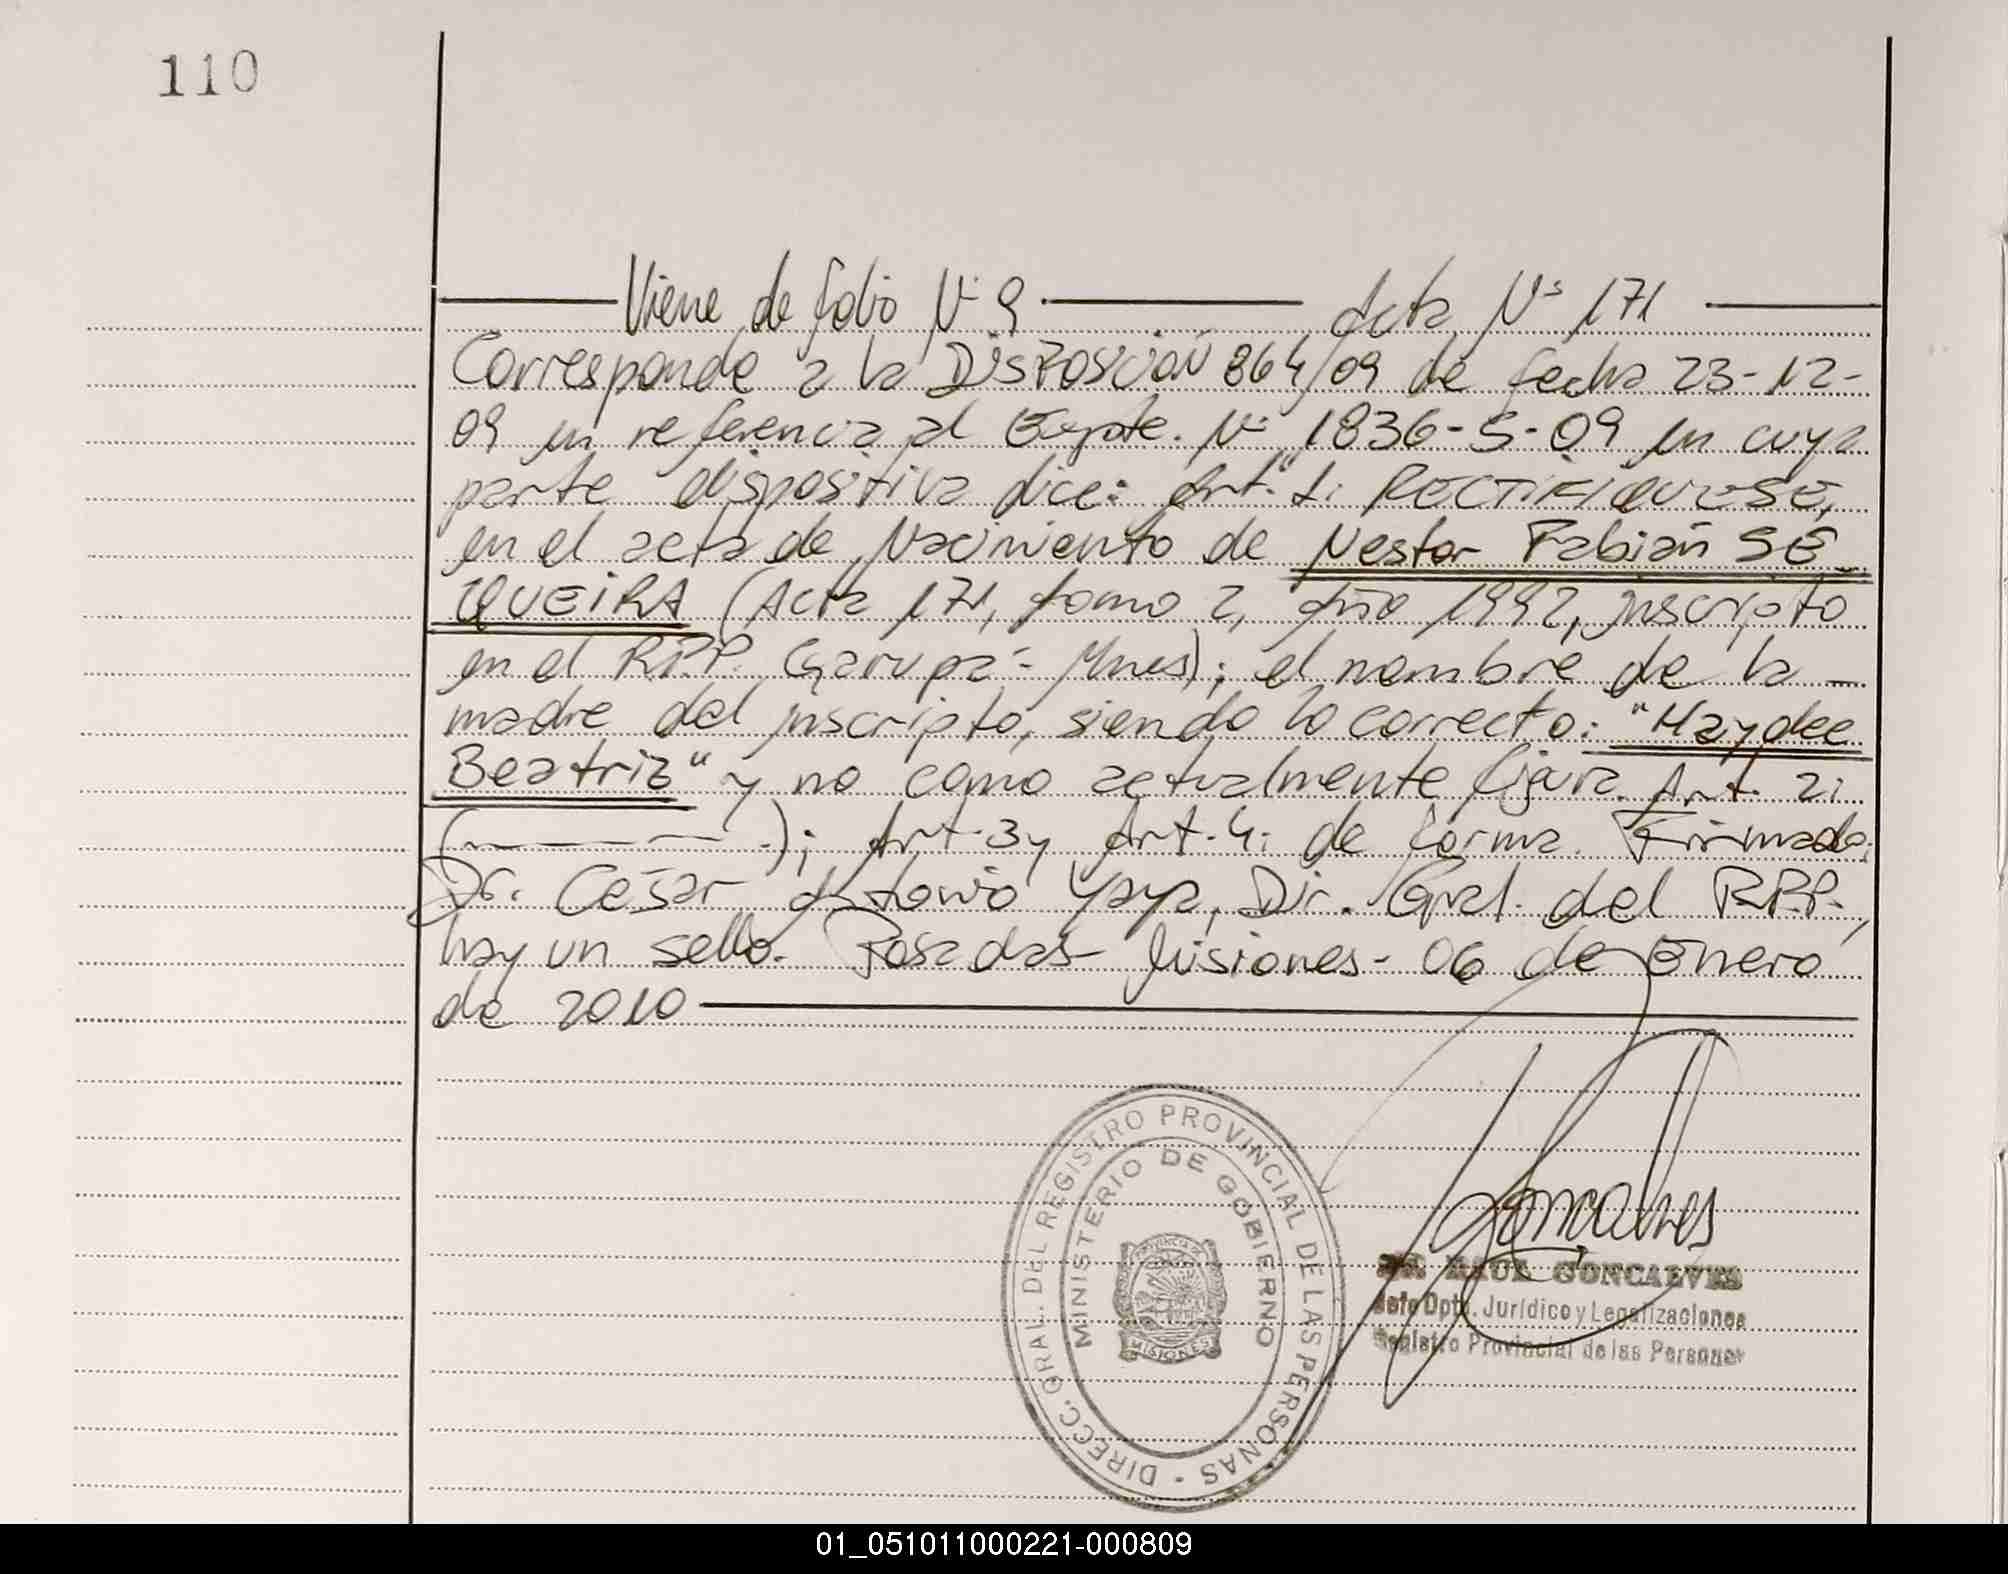 110
Viene de folio Nº 9 Acta Nº 171
Corresponde a la DISPOSICIÓN 864/09 de fecha 23-12-
09 en referencia al Expte. Nº 1836-S-09 en cuya
parte dispositiva dice: Art. 1: RECTIFIQUESE,
en el acta de Nacimiento de Nestor Fabián SE
QUEIRA (Acta 171, tomo 2, Año 1992, inscripto
en el R.P.P. Garupá - Mnes); el nombre de la
madre del inscripto, siendo lo correcto: "Haydee
Beatriz" y no como actualmente figura. Art. 2:
( ); Art. 3 y Art. 4: de forma. Firmado:
Dr. Cesar Antonio Yaya, Dir. Gral. del R.P.P.,
hay un sello. Posadas - Misiones - 06 de Enero
de 2010
DIRECC. GRAL. DEL REGISTRO PROVINCIAL DE LAS PERSONAS
MINISTERIO DE GOBIERNO
PROVINCIA DE
MISIONES
Goncalves
DR. RAUL GONCALVES
Jefe Dpto. Jurídico y Legalizaciones
Registro Provincial de las Personas
01_051011000221-000809